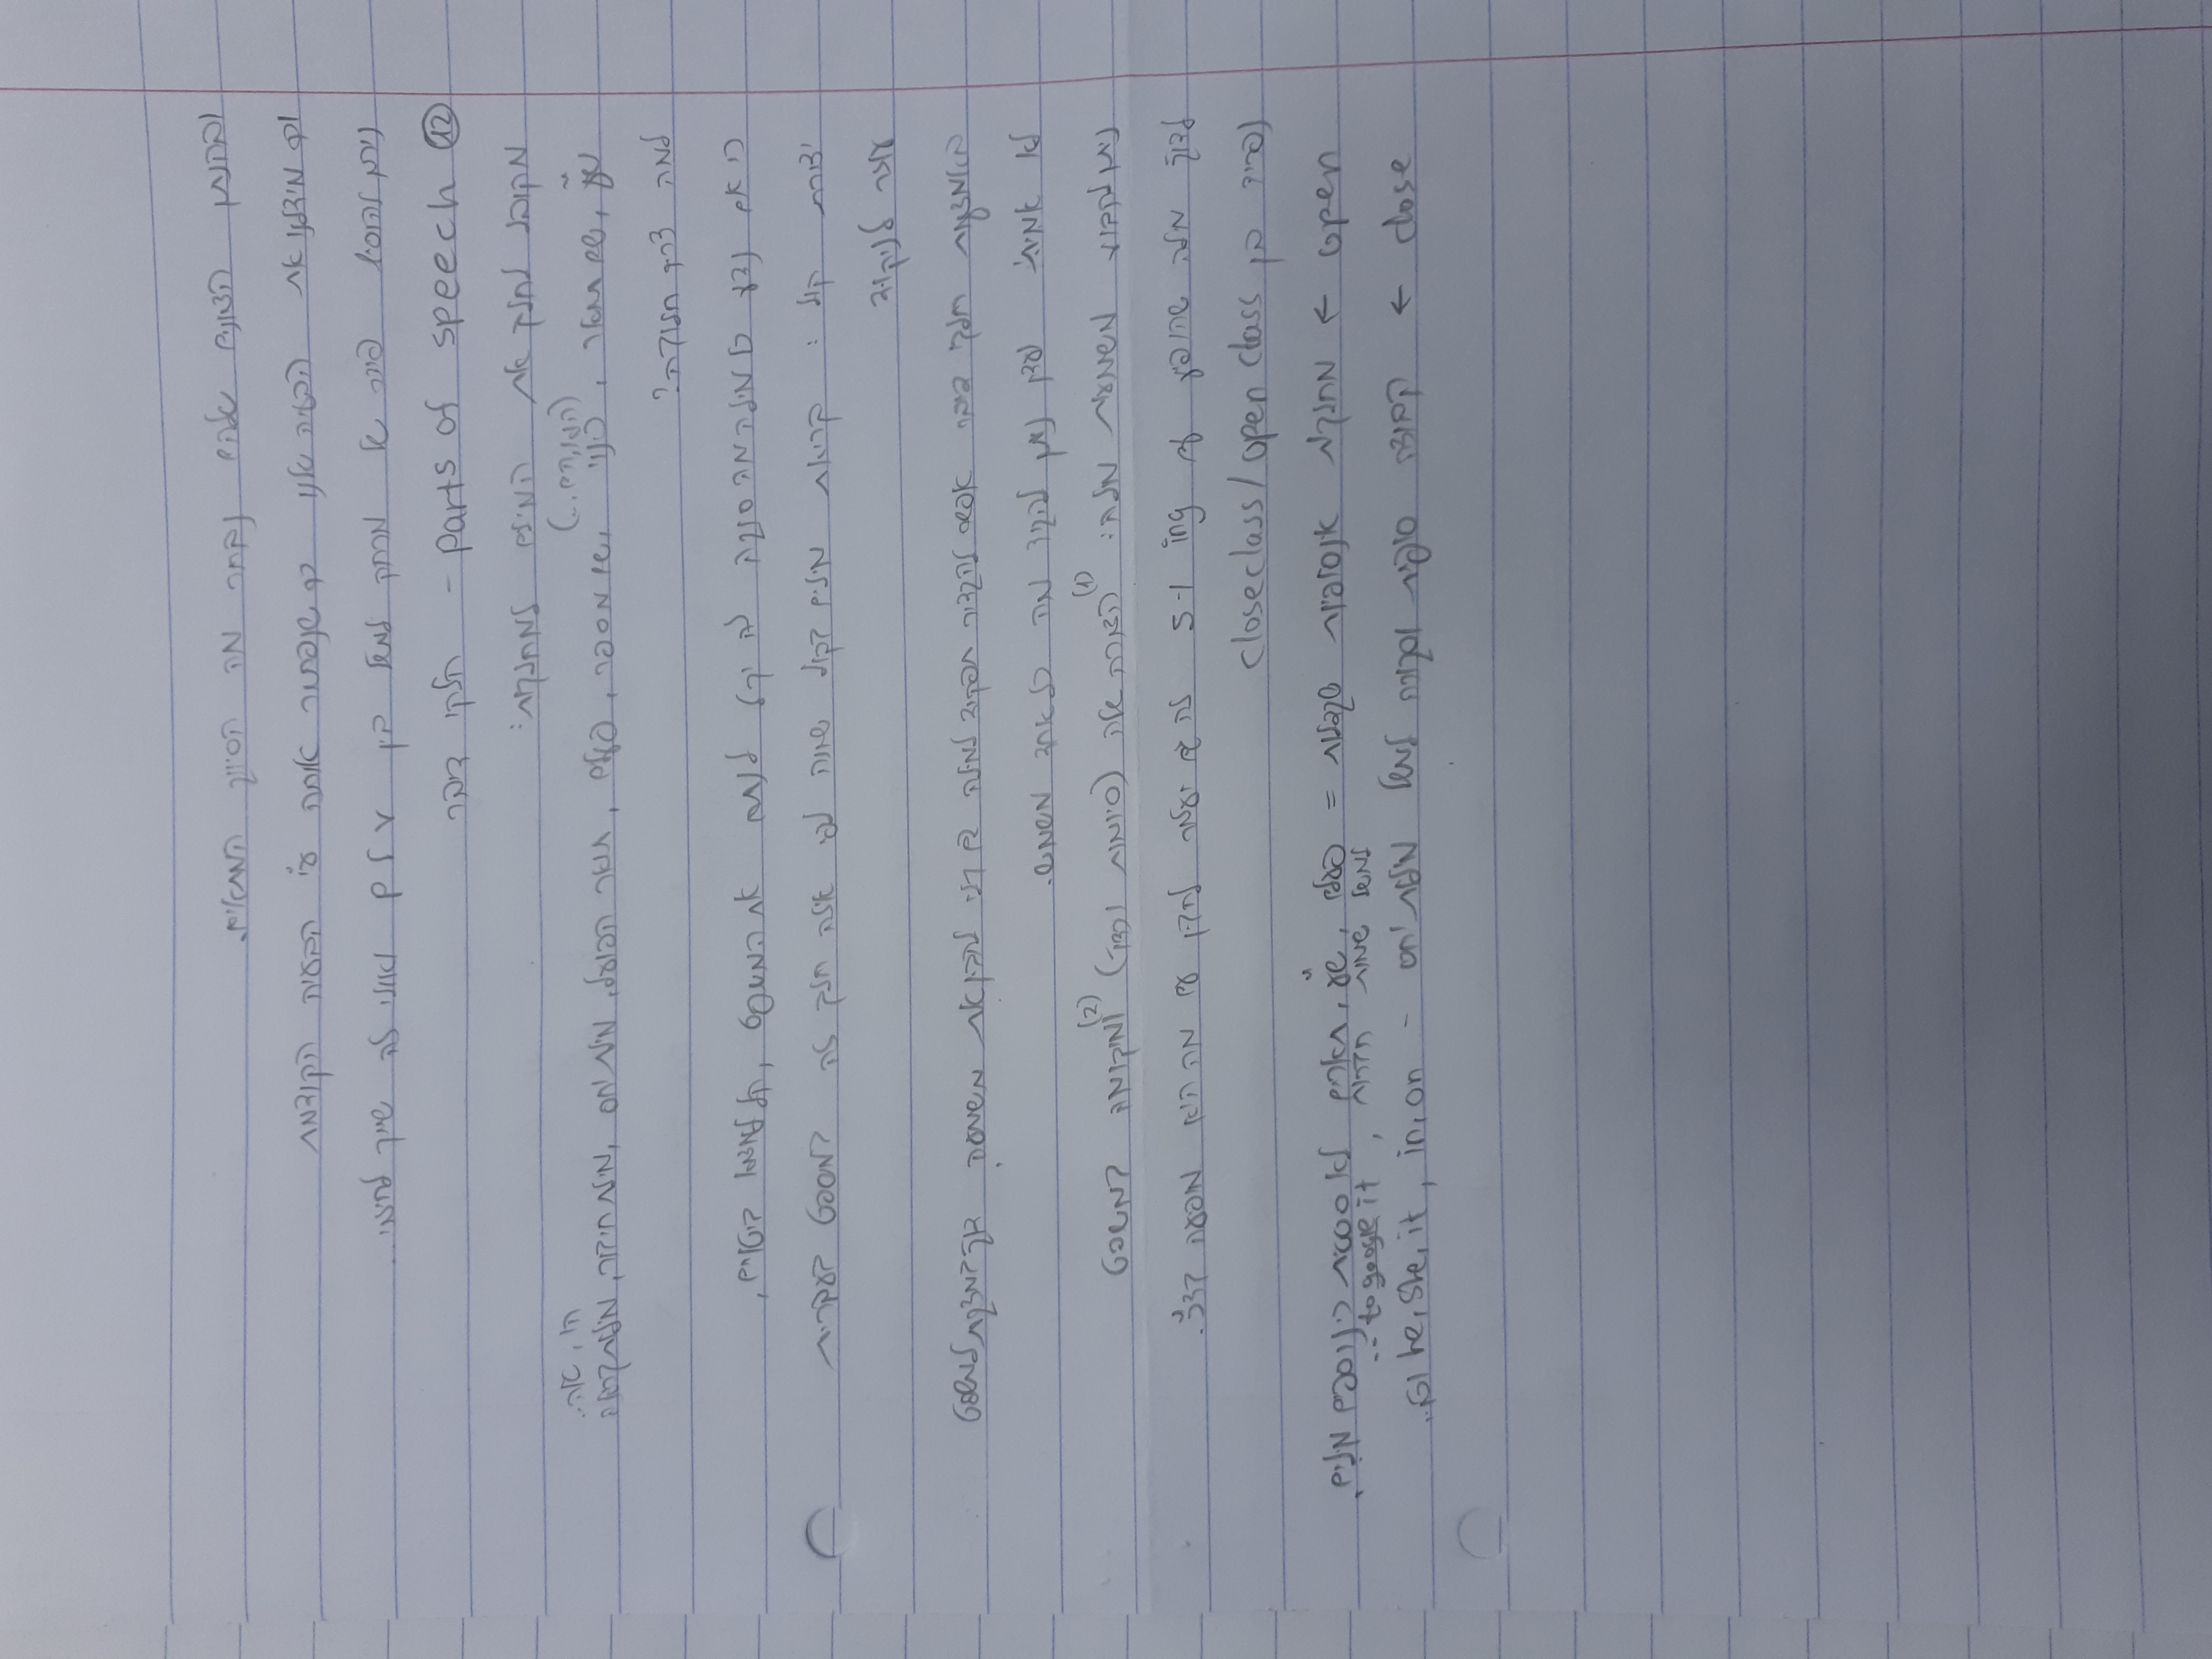 ובהנתן הציונים שלהם נבחר מה הסיווג המתאים.
וכך מידלנו את הבעיה שלנו כך שנפתור אותה ע״י הבעיה הקודמת
ניתן להוסיף פיצ'ר של מרחק למשל בין ואולי זה שייך לחיצוני...
⑫ parts of speech - חלקי דיבר
מקובל לחלק את המילים למחלקות:
(הנו, הם,..) הו, אה..
ש״ע, שם תואר, כינוי, שם מספר, פעלים, תואר הפועל, מילות יחס, מילות חיבור, מילות קריאה
למה צריך חלוקה?
כי אם נדע כל מילה מה סוגה זה יקל לנתח את המשפט, קל למצוא ביטויים,
יצירת קול: קריאת מילים בקול שונה לפי איזה חלק זה במשפט בעברית
עוזר לניקוד
באמצעות חלקי דיבר אפשר להגדיר תפקיד למילה גם בלי להבין את משמעה אף במצגת למשפט
לא אמיתי עדין ניתן להגיד מה כל אחד משמש.
ניתן לקבוע משמעות מלה: (1) הצורה שלה (סיומות וכדו') (2) ומיקומה במשפט
לדוג' מלה שהופיע עם ing ו-s זה גם יעזור להבין עם מה היא מופעה בד״כ.
נפריד בין close class / open class
open ← מחלקת אינסופיות שקבלות = פעלים, ש״ע, תארים לא סטטית כי נוספים מלים.
למשל שמות חברות, to google it ..
close ← קבוצה סופית וסגורה למשל מילות יחס - he, she, it, in, on וכו'..